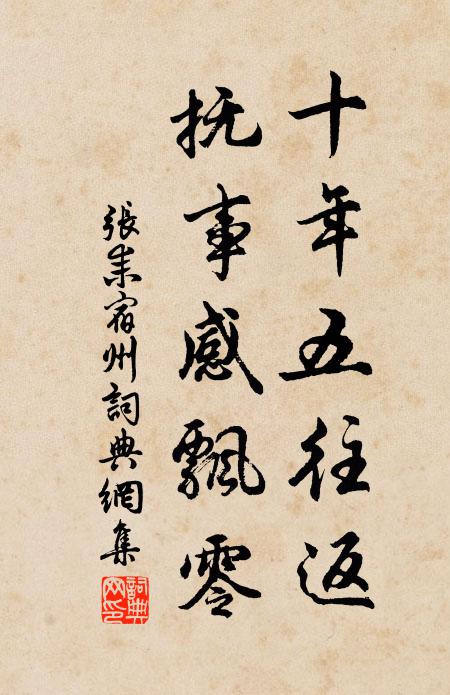 十年五往返
抚事感飄零
張耒宿州詞典網集
詞典网印